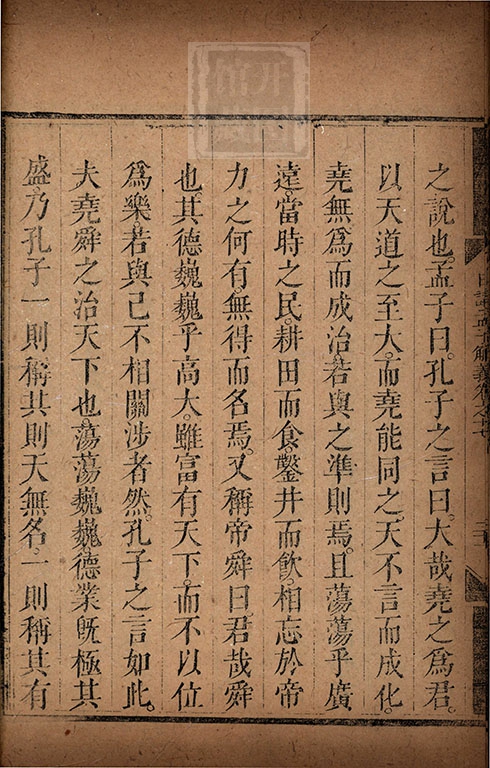 之說也。孟子曰。孔子之言曰。大哉堯之爲君。
以天道之至大。而堯能同之。天不言而成化。
堯無爲而成治。若與之準則焉。且蕩蕩乎廣
遠。當時之民。耕田而食。鑿井而飲。相忘於帝
力之何有。無得而名焉。又稱帝舜曰君哉舜
也。其德巍巍乎高大。雖富有天下。而不以位
爲樂。若與己不相關涉者然。孔子之言如此。
夫堯舜之治天下也。蕩蕩巍巍。德業旣極其
盛。乃孔子一則稱其則天無名。一則稱其有